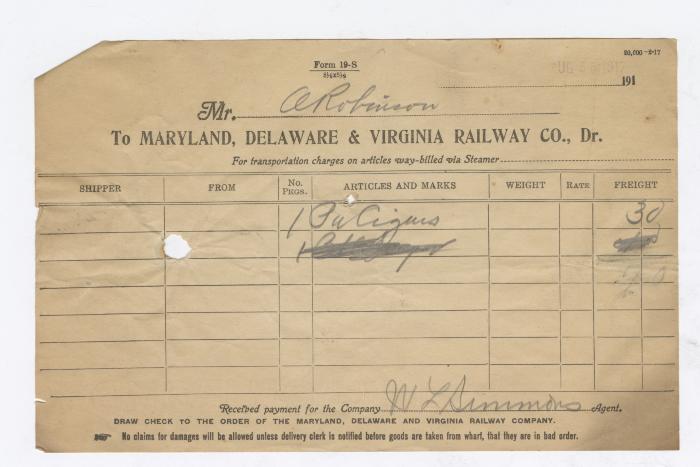 Form 19-S
8½x5½
20,000-2-17
191
Mr. A Robinson
To MARYLAND, DELAWARE & VIRGINIA RAILWAY CO., Dr.
For transportation charges on articles way-billed via Steamer
SHIPPER FROM No. PKGS. ARTICLES AND MARKS WEIGHT RATE FREIGHT
1 Cigars 30
1
Received payment for the Company W L Simmons Agent.
DRAW CHECK TO THE ORDER OF THE MARYLAND, DELAWARE AND VIRGINIA RAILWAY COMPANY.
No claims for damages will be allowed unless delivery clerk is notified before goods are taken from wharf, that they are in bad order.